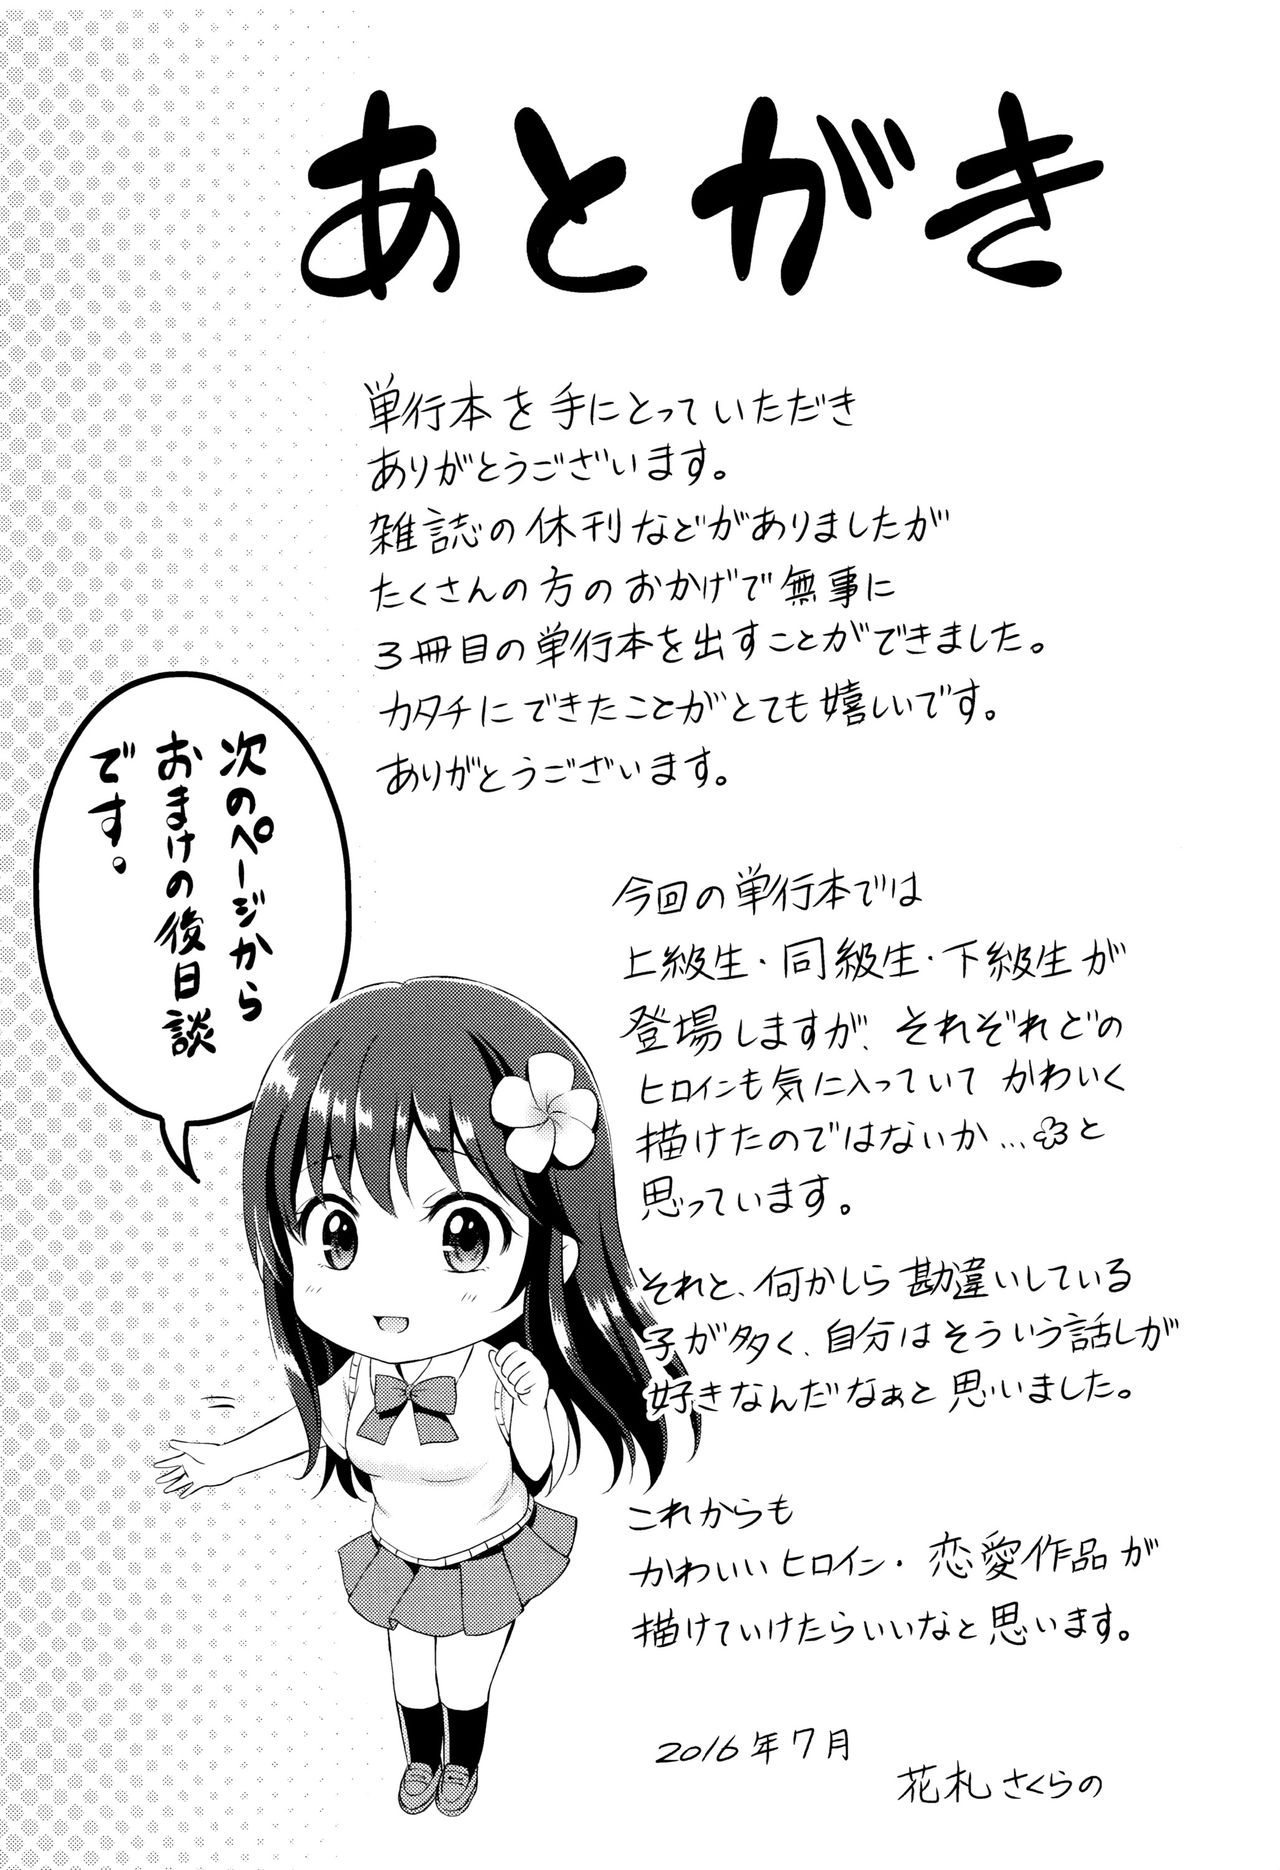 あとがき
単行本を手にとっていただき
ありがとうございます。
雑誌の休刊などがありましたが
たくさんの方のおかげで無事に
3冊目の単行本を出すことができました。
カタチにできたことがとても嬉しいです。
ありがとうございます。
今回の単行本では
上級生・同級生・下級生が
登場しますが、それぞれどの
ヒロインも気に入っていてかわいく
描けたのではないか…と
思っています。
それと、何かしら勘違いしている
子が多く、自分はそういう話しが
好きなんだなぁと思いました。
これからも
かわいいヒロイン・恋愛作品が
描けていけたらいいなと思います。
2016年7月
花札さくらの
次のページから
おまけの後日談
です。